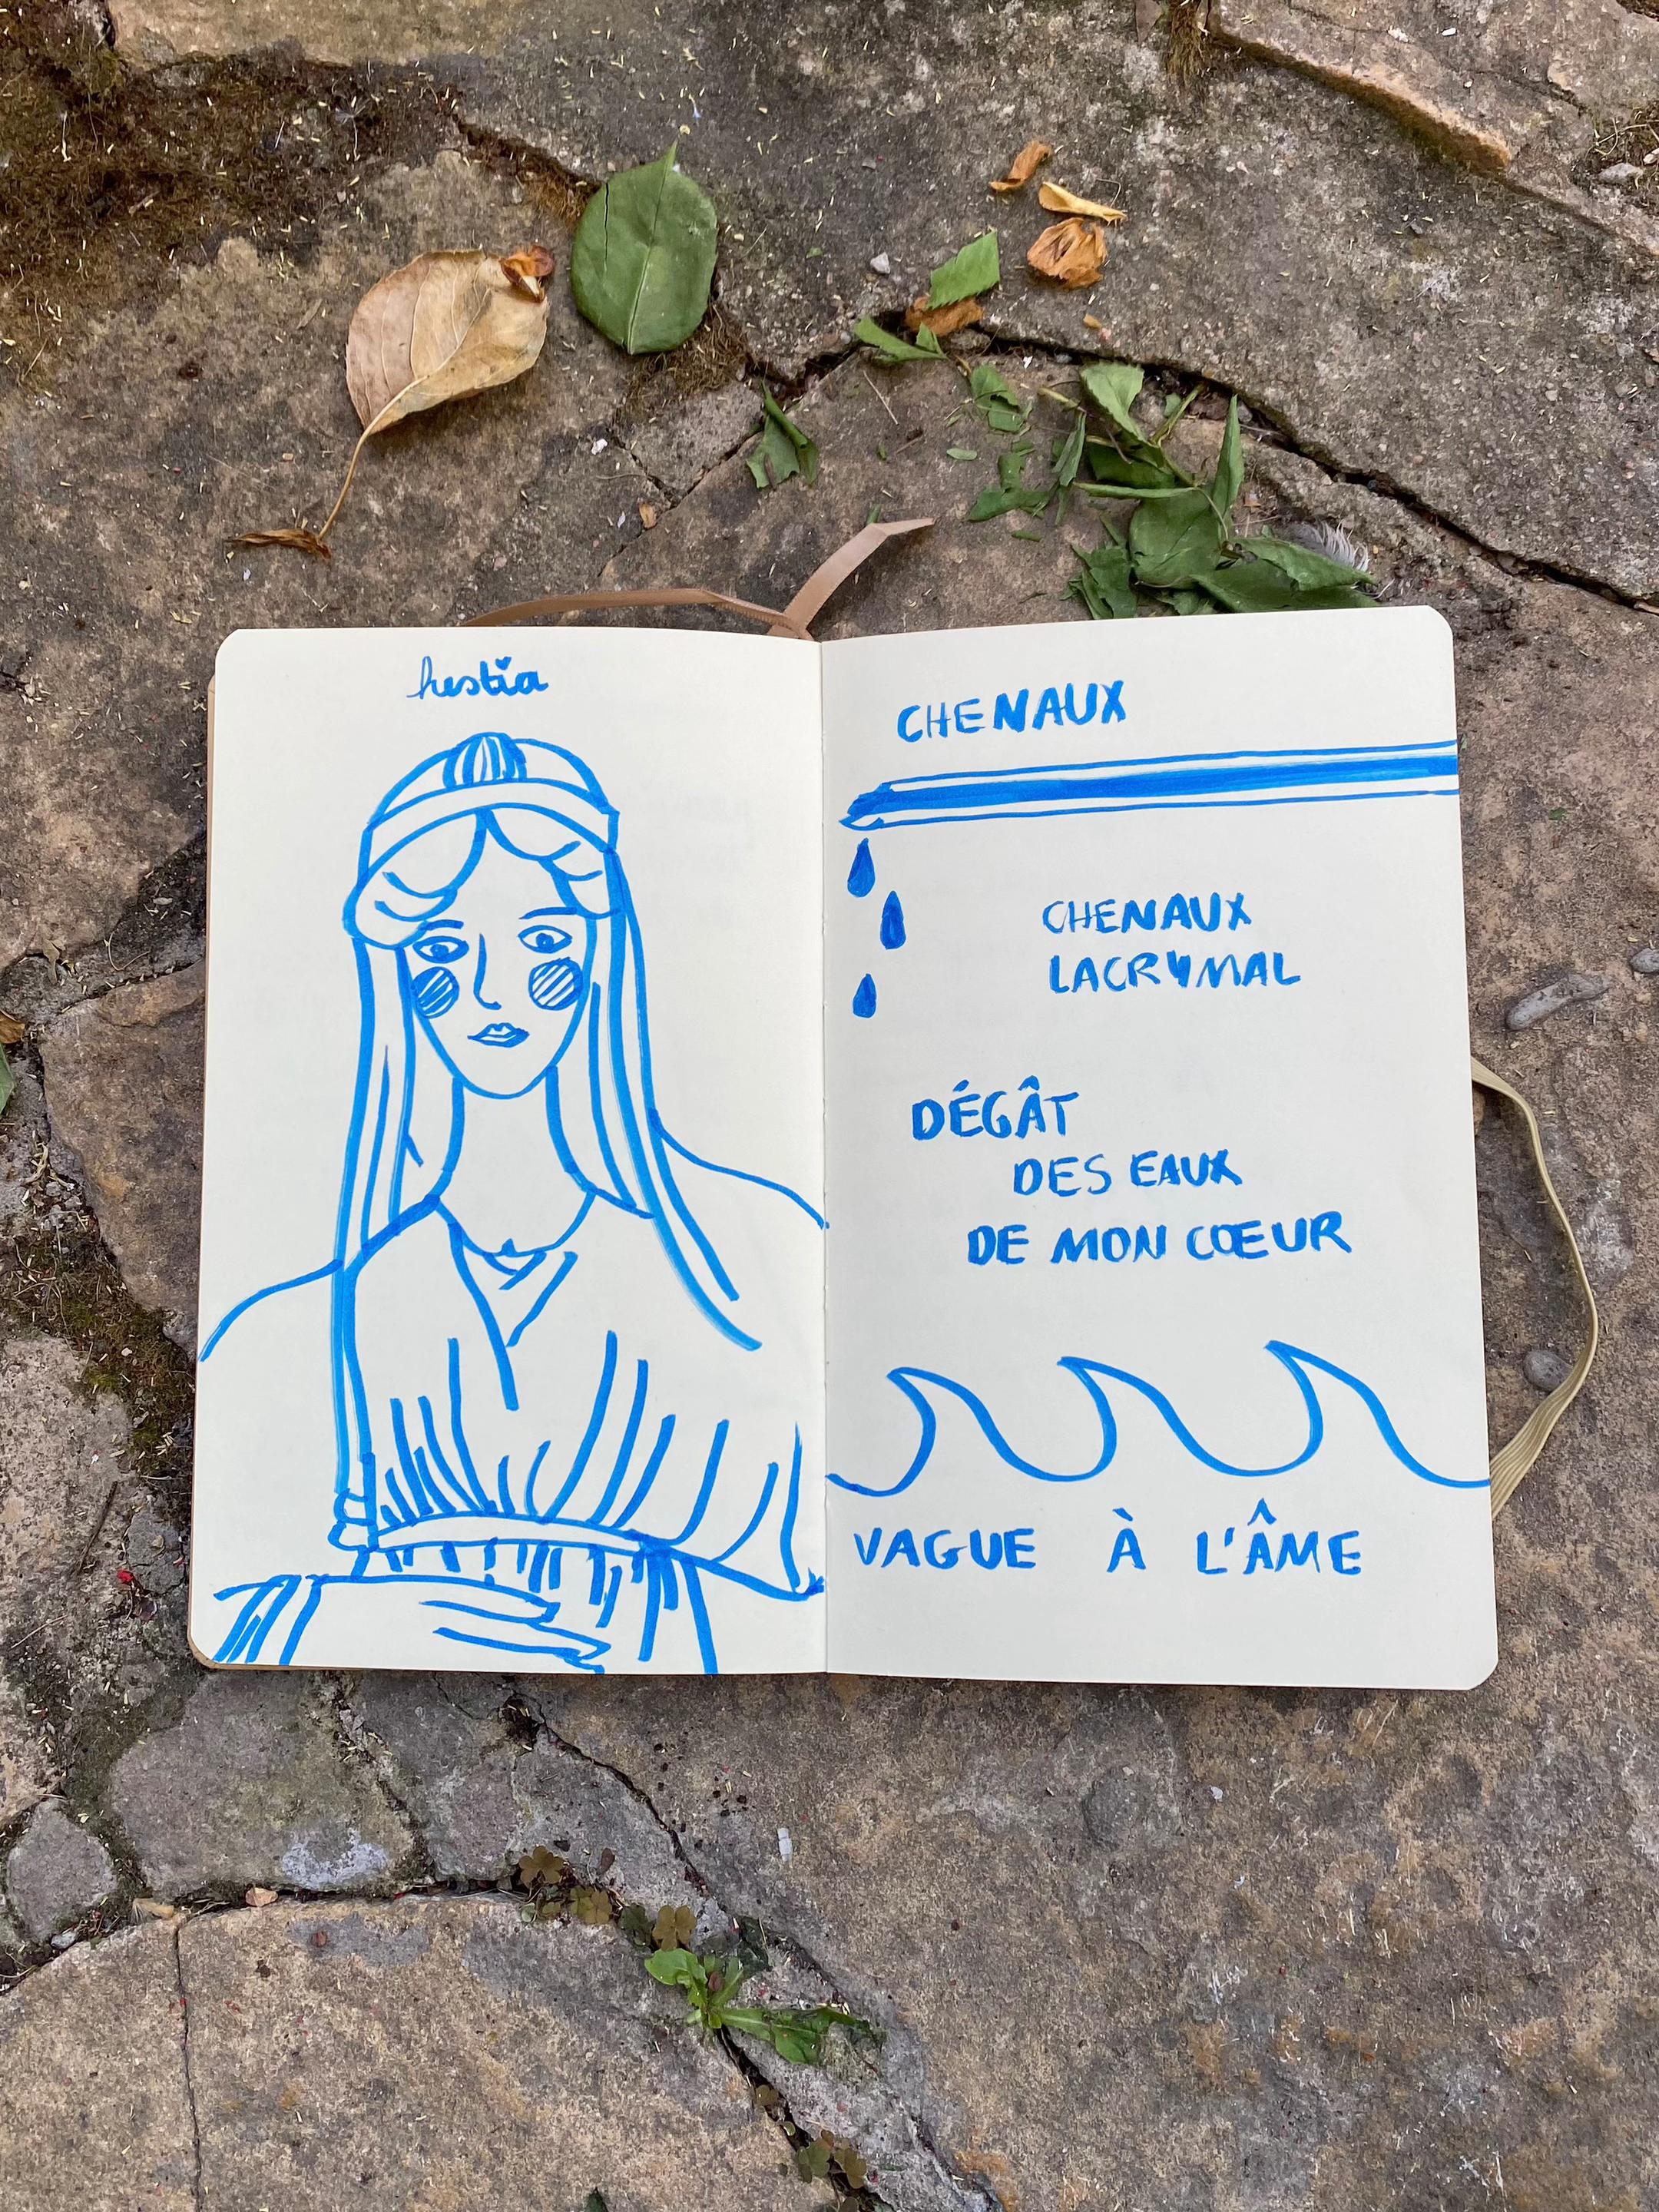 hestia
CHENAUX
CHENAUX
LACRYMAL
DÉGÂT
DES EAUX
DE MON CŒUR
VAGUE À L'ÂME